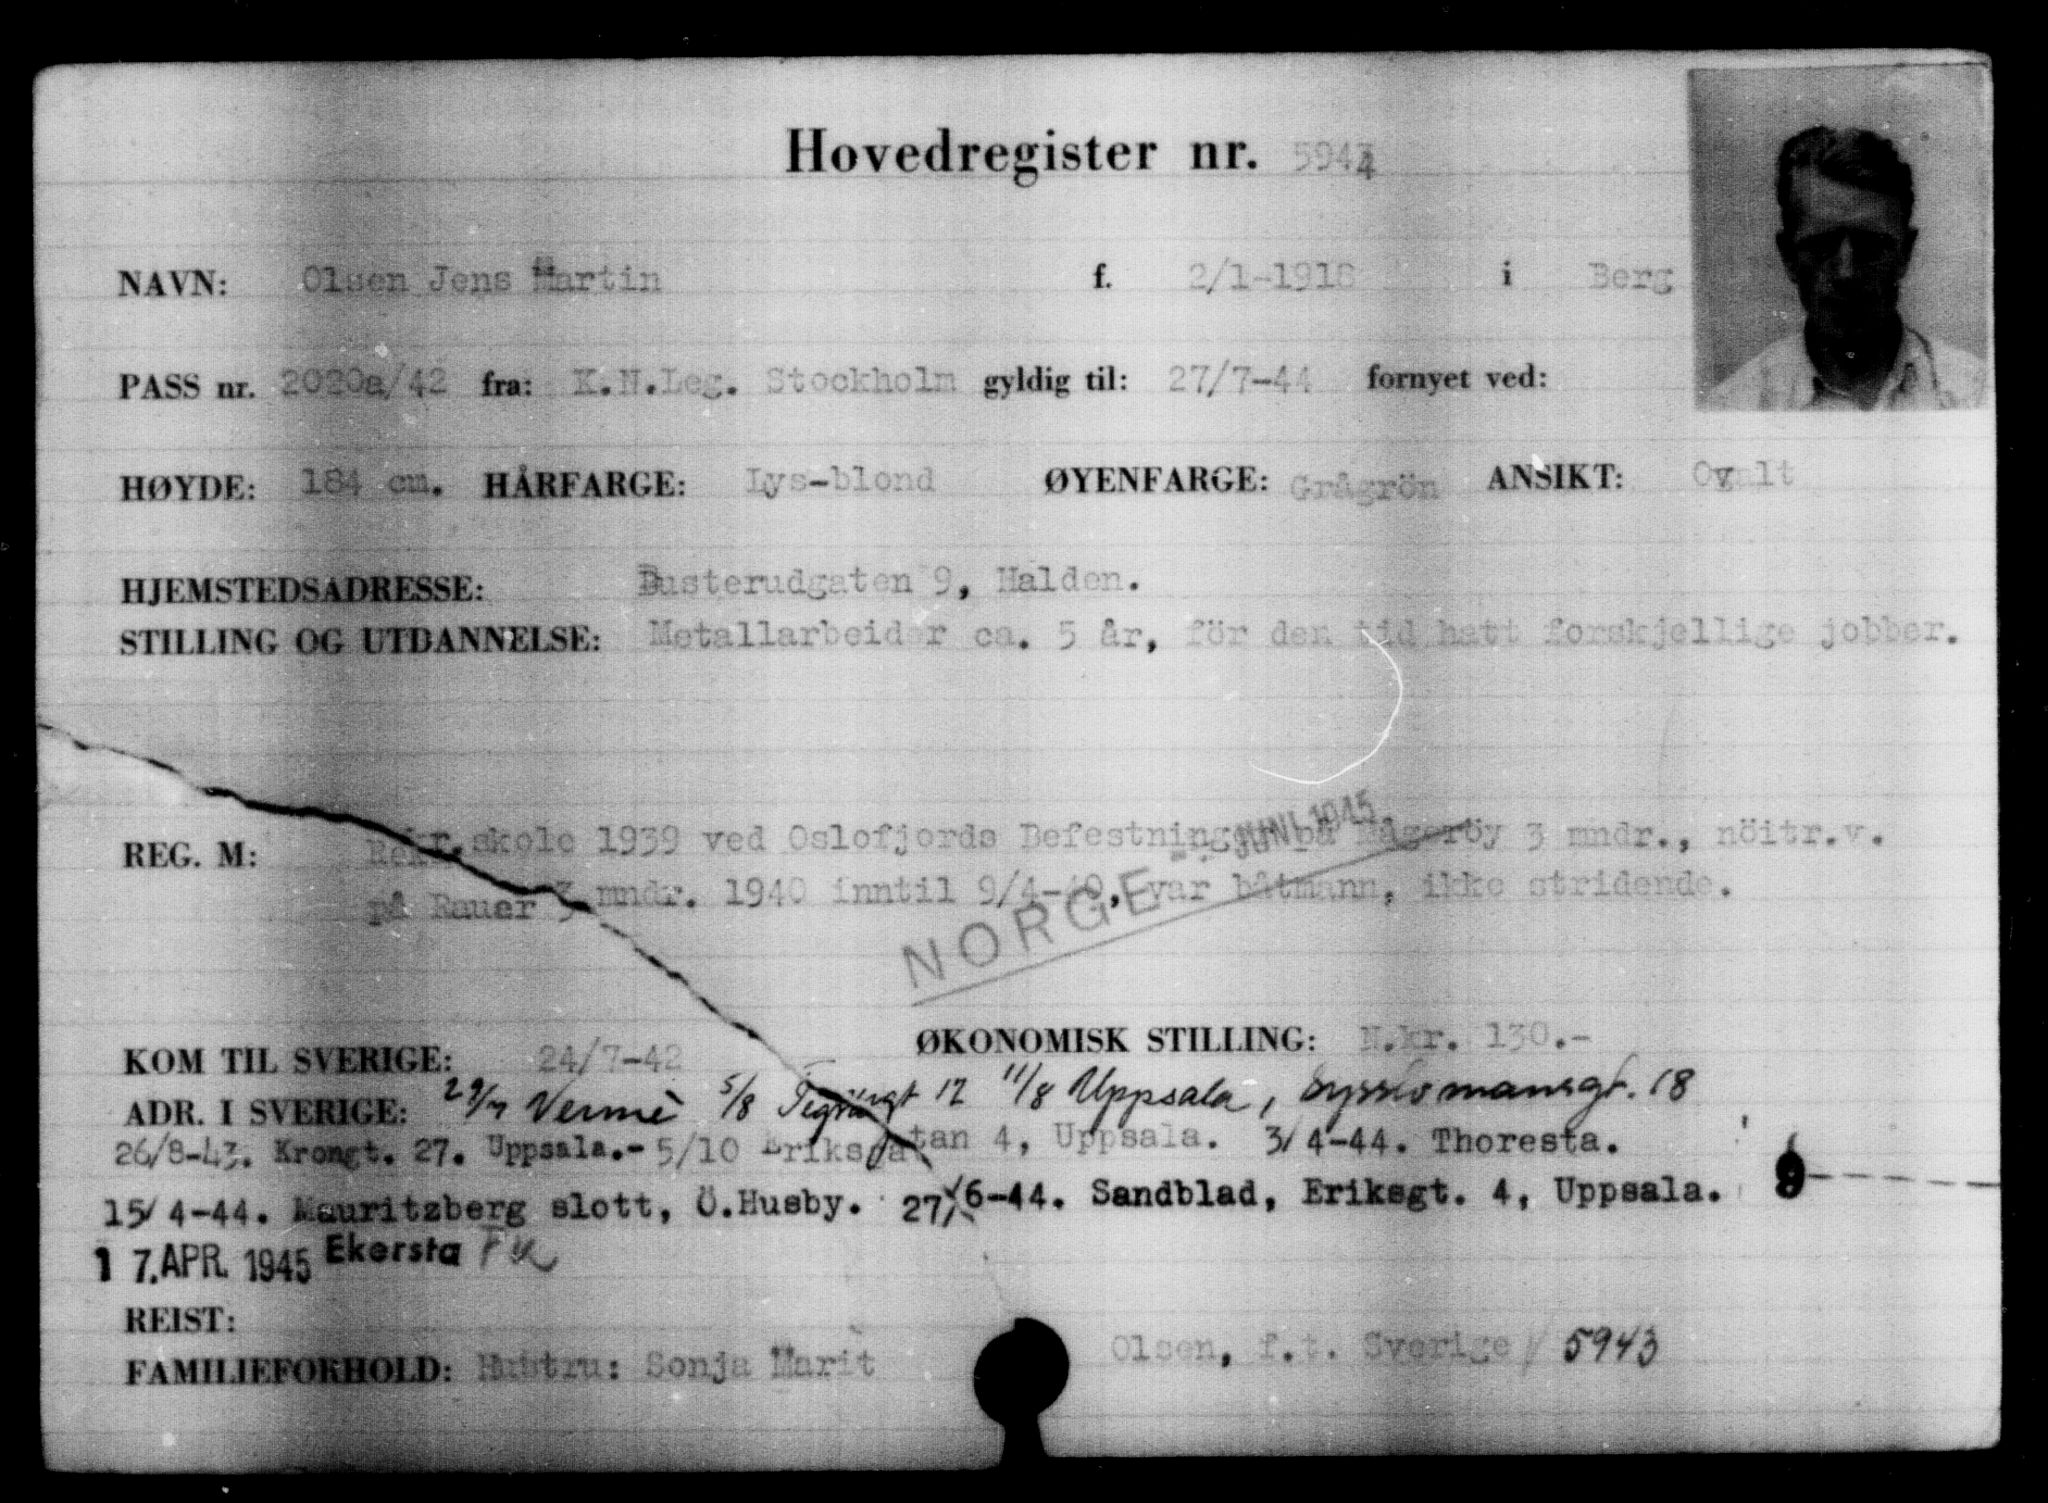 Hovedregister nr. 5944
NAVN: Olsen Jens Martin f. 2/1-1918 i Berg
PASS nr. 2020a/42 fra: K.N.Leg. Stockholm gyldig til: 27/7-44 fornyet ved:
HØYDE: 184 cm. HÅRFARGE: Lys-blond ØYENFARGE: Grågrön ANSIKT: Ovalt
HJEMSTEDSADRESSE: Busterudgaten 9, Halden.
STILLING OG UTDANNELSE: Metallarbeider ca. 5 år, för den tid hatt forskjellige jobber.
REG. M: Rekr.skole 1939 ved Oslofjords Befestninger på Mågeröy 3 mndr., nöitr.v.
på Rauer 3 mndr. 1940 inntil 9/4-40, var båtmann, ikke stridende.
NORGE JUNI 1945
KOM TIL SVERIGE: 24/7-42 ØKONOMISK STILLING: N.kr. 130.-
ADR. I SVERIGE: 29/7 5/8 12 11/8 Uppsala, Sysslomansgt. 18
26/8-43. Krongt. 27. Uppsala.- 5/10 Eriksgatan 4, Uppsala. 3/4-44. Thoresta.
15/4-44. Mauritzberg slott, Ö.Husby. 27/6-44. Sandblad, Eriksgt. 4, Uppsala.
17. APR. 1945 Ekersta
REIST:
FAMILIEFORHOLD: Hustru: Sonja Marit Olsen, f.t. Sverige / 5943